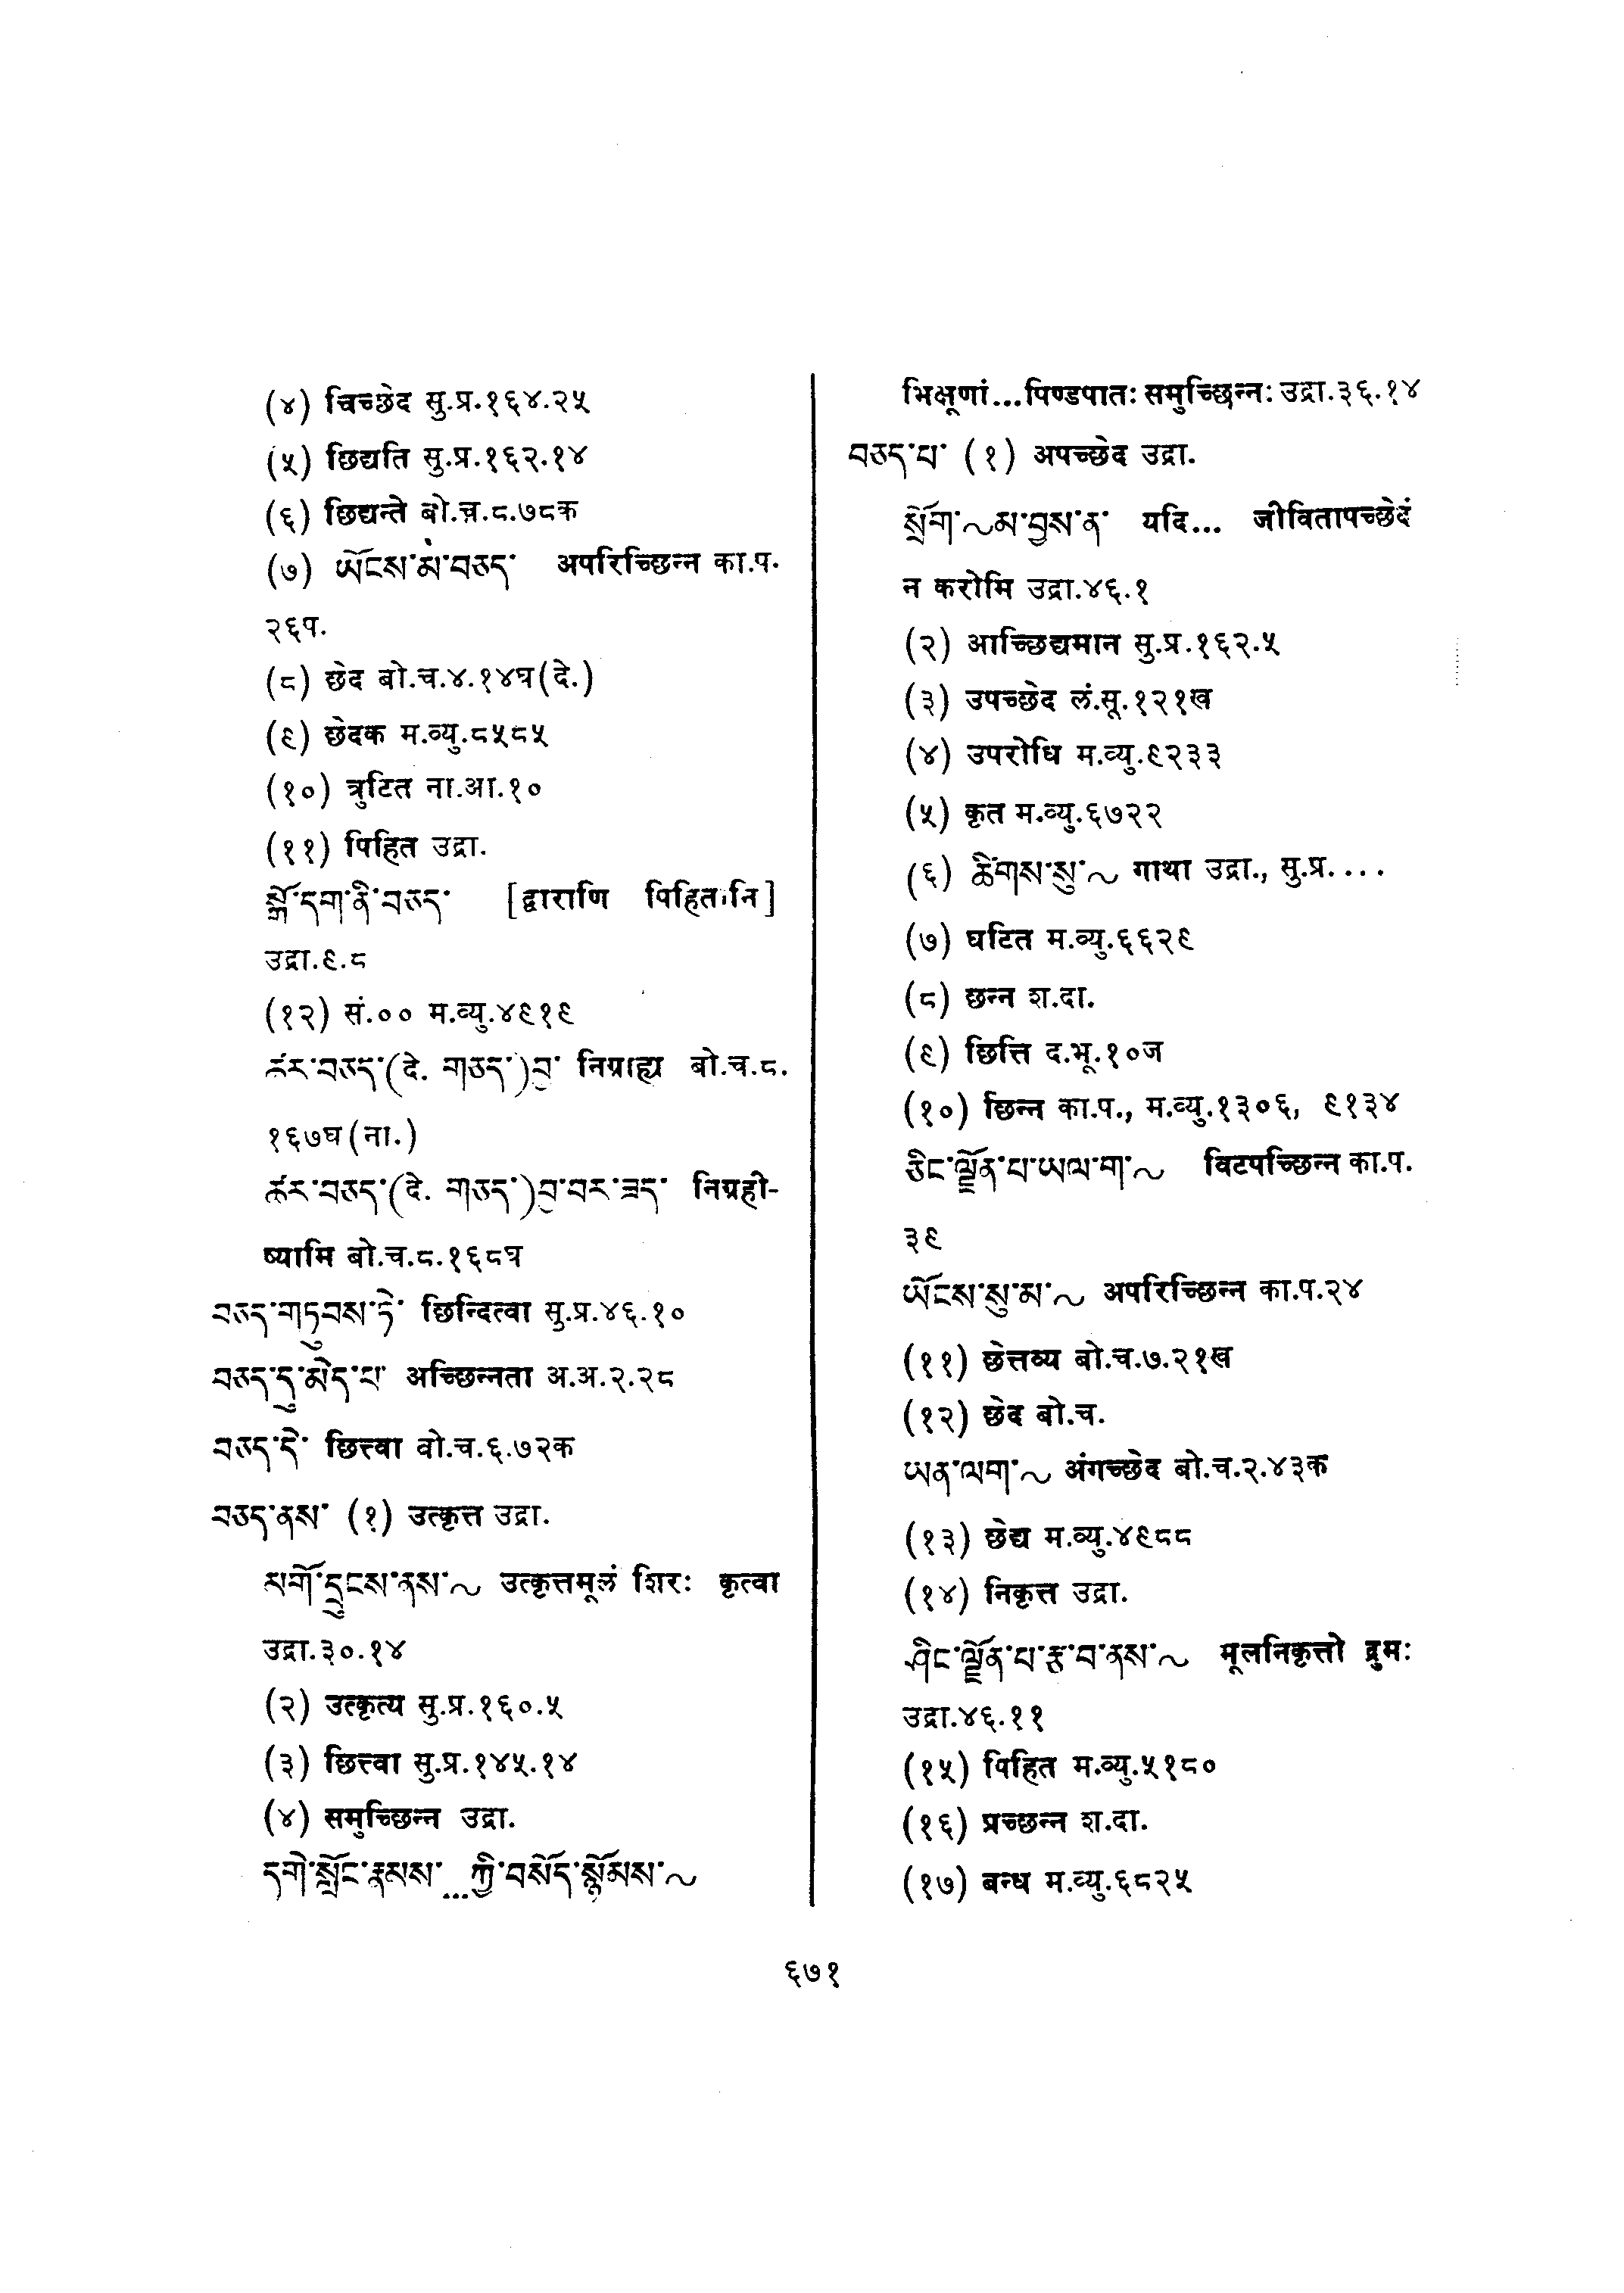 (४) चिच्छेद सु.प्र.१६४.२५
(५) छिद्यति सु.प्र.१६२.१४
(६) छिद्यन्ते बो.च.८.७८क
(७) ཡོངས་མེ་བཅད་ अपरिच्छिन्न का.प.
२६प.
(८) छेद बो.च.४.१४घ(दे.)
(९) छेदक म.व्यु.८५८५
(१०) त्रुटित ना.आ.१०
(११) पिहित उद्रा.
སྒོ་དག་ནི་བཅད་ [द्वाराणि पिहितानि]
उद्रा.९.८
(१२) सं.०० म.व्यु.४९१९
ཚར་བཅད་(दे. གཅད་)བྱ་ निग्राह्य बो.च.८.
१६७घ(ना.)
ཚར་བཅད་(दे. གཅད་)བྱ་བར་ཟད་ निग्रही-
ष्यामि बो.च.८.१६८घ
བཅད་གཏུབས་ཏེ་ छिन्दित्वा सु.प्र.४६.१०
བཅད་དུ་མེད་པ་ अच्छिन्नता अ.अ.२.२८
བཅད་དེ་ छित्त्वा बो.च.६.७२क
བཅད་ནས་ (१) उत्कृत्त उद्रा.
མགོ་དྲུངས་ནས་~ उत्कृत्तमूलं शिरः कृत्वा
उद्रा.३०.१४
(२) उत्कृत्य सु.प्र.१६०.५
(३) छित्त्वा सु.प्र.१४५.१४
(४) समुच्छिन्न उद्रा.
དགེ་སློང་རྣམས་...ཀྱི་བསོད་སྙོམས་~
भिक्षूणां...पिण्डपातः समुच्छिन्नः उद्रा.३६.१४
བཅད་པ་ (१) अपच्छेद उद्रा.
སྲོག་~མ་བྱས་ན་ यदि... जीवितापच्छेदं
न करोमि उद्रा.४६.१
(२) आच्छिद्यमान सु.प्र.१६२.५
(३) उपच्छेद लं.सू.१२१ख
(४) उपरोधि म.व्यु.९२३३
(५) कृत म.व्यु.६७२२
(६) ཚིགས་སུ་~ गाथा उद्रा., सु.प्र....
(७) घटित म.व्यु.६६२९
(८) छन्न श.दा.
(९) छित्ति द.भू.१०ज
(१०) छिन्न का.प., म.व्यु.१३०६, ९१३४
ཅིང་ལྗོན་པ་ཡལ་ག་~ विटपच्छिन्न का.प.
३९
ཡོངས་སུ་མ་~ अपरिच्छिन्न का.प.२४
(११) छेत्तव्य बो.च.७.२१ख
(१२) छेद बो.च.
ཡན་ལག་~ अंगच्छेद बो.च.२.४३क
(१३) छेद्य म.व्यु.४९८८
(१४) निकृत्त उद्रा.
ཤིང་ལྗོན་པ་རྩ་བ་ནས་~ मूलनिकृत्तो द्रुमः
उद्रा.४६.११
(१५) पिहित म.व्यु.५१८०
(१६) प्रच्छन्न श.दा.
(१७) बन्ध म.व्यु.६८२५
६७१